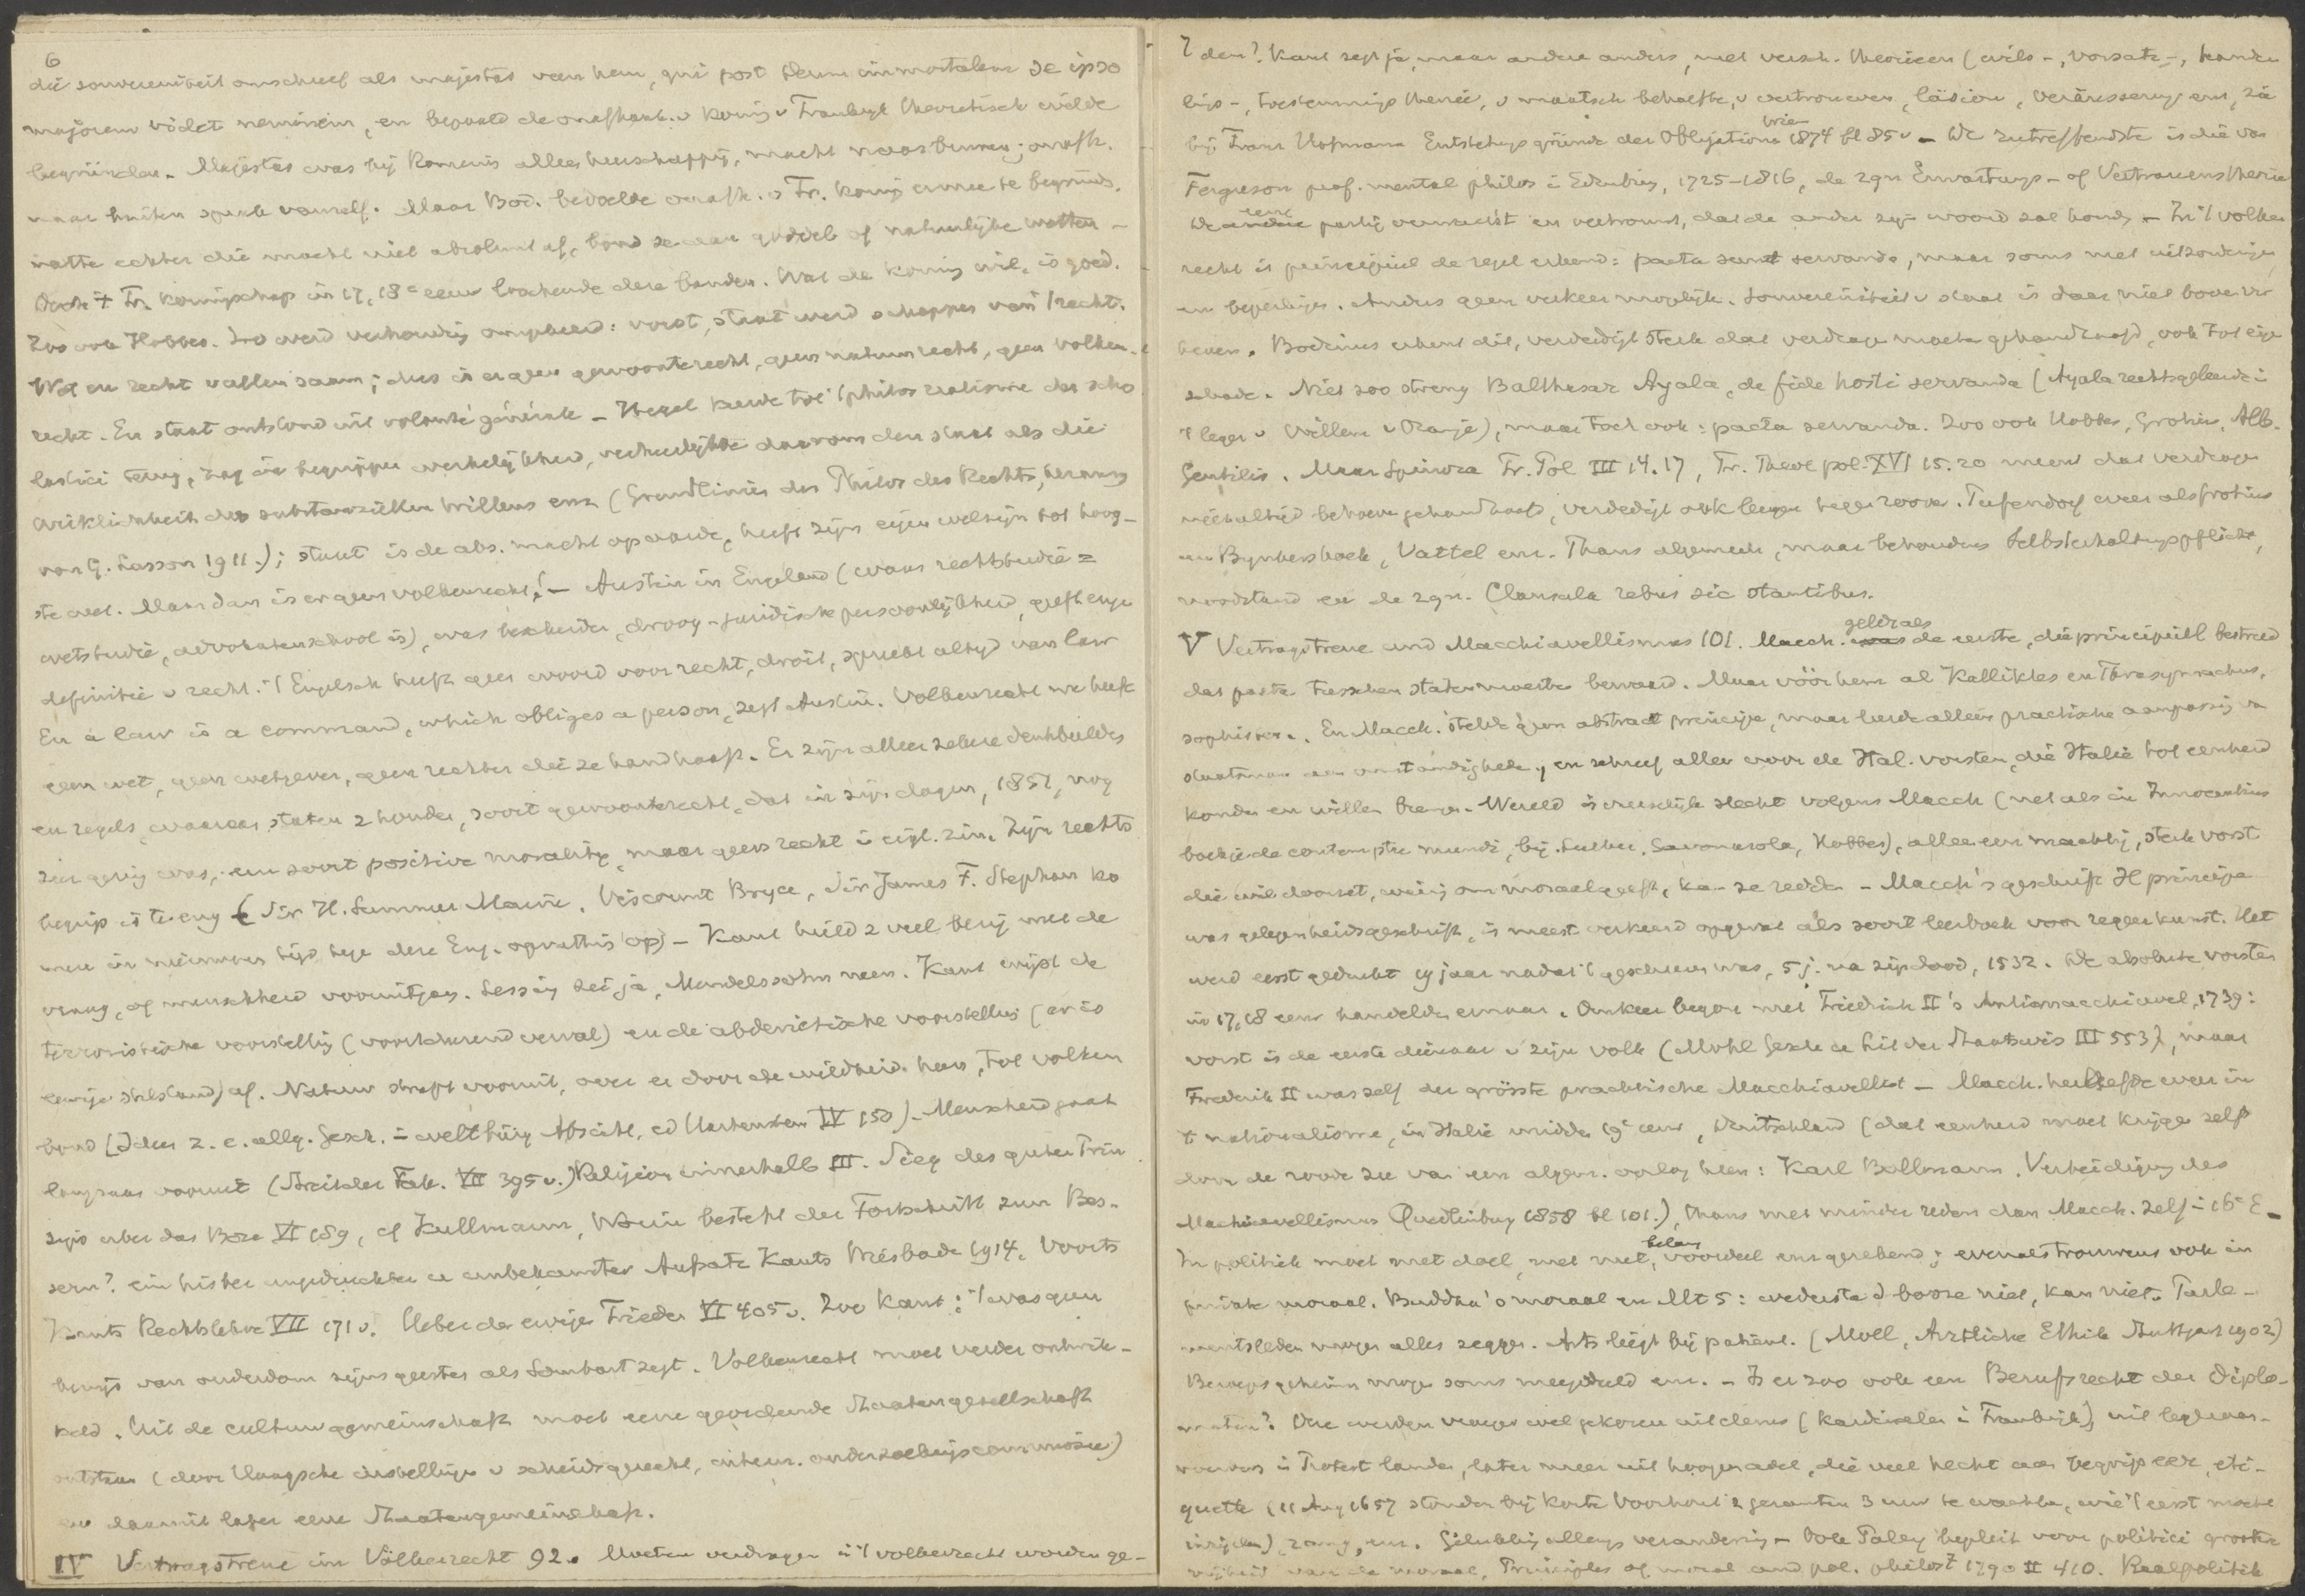 6
die souvereiniteit omschreef als majestas van hem, qui post Deum immortalem se ipso
majorem videt neminem, en bepaald de onafhank. v koning v Frankryk theoretisch wilde
begründen. Majestas was bij Romeins alleen heerschappij, macht naar binnen; onafh.
naar buiten sprak vanzelf. Maar Bod. bedoelde onafh. v Fr. koning ermee te begründ.
echter die macht niet absoluut af, bond ze aan godd. of natuurlyke wetten –
Doch 't Fr. koningschap in 17, 18e eeuw deze banden. Wat de koning wil, is goed.
Zoo ook Hobbes. Zoo werd verhouding omgekeerd: vorst, staat werd schepper van 't recht.
Wet en recht vallen saam; dus is er geen gewoonterecht, geen natuurrecht, geen volken-
recht. En staat ontstond uit volonté générale – Hegel keerde tot 't philos realisme der scho
lastici terug, zag in begrippen werkelijkheid, verheerlijkte daarom den staat als die
Wirklichkeit des substanziellen Willens enz (Grundlinien der Philos des Rechts, herausg
von G. Lasson 1911.); staat is de abs. macht op aarde, heeft zijn eigen welzijn tot hoog-
ste wet. Maar dan is er geen volkenrecht! – Austin in Engeland (waar rechtstudie =
wetstudie, advokatenschool is), was bescheiden, droog-juridische persoonlijkheid, geeft enge
definitie v recht. 't Engelsch heeft geen woord voor recht, droit, spreekt altyd van law
En a law is a command, which obliges a person, zegt Austin. Volkenrecht nu heeft
geen wet, geen wetgever, geen rechter die ze handhaaft. Er zijn alleen zekere denkbeelden
en regels, waaraan staten z houden, soort gewoonterecht, dat in zijn dagen, 1857, nog
zeer gering was, een soort positive morality, maar geen recht in eigl. zin. Zijn rechts
begrip is te eng (Sir H. Sumner Maine, Viscount Bryce, Sir James F. Stephen ko
men in nieuweren tijd tege deze Eng. opvatting op) – Kant hield z veel bezig met de
vraag, of menschheid vooruitging. Lessing zei ja, Mendelssohn neen. Kant wijst de
terroristische voorstelling (voortdurend verval) en de abderitische voorstelling (er is
eeuwige stilstand) af. Natuur streeft vooruit, ook door de wildheid heen, tot volken
bond (Idee z. e. allg. Gesch. in weltbürg Absicht, ed Hartenstein IV 150). Menschheid gaat
langzaam vooruit (Streit der Fak. VII 395 v.) Religion innerhalb III. Sieg des guten Prin
zips über das Böse VI 189, cf Kullmann, Worin besteht der Fortschritt zum Bes-
sern? ein bisher ungedruckter u unbekannter Aufsatz Kants Wiesbaden 1914. Voorts
Kants Rechtslehre VII 171 v. Ueber den ewigen Frieden VI 405 v. Zoo Kant: 't was geen
bewijs van ouderdom zijns geestes als Sombart zegt. Volkenrecht moet verder ontwik-
keld. Uit de cultuurgemeinschaft moet eene geordende Staatengesellschaft
ontstaan (door Haagsche instellingen v scheidsgerecht, intern. onderzoekingscommissie)
en daaruit later eene Staatengemeinschaft.
IV Vertragstreue im Völkerrecht 92. Moeten verdragen in 't volkenrecht worden ge-
den? Kant zegt ja, maar andere anders, met versch. theorieen (wils-, vorsatz-, hande
lings-, toestemmings theorie, v maatsch behoefte, v vertrouwen, läsion, veräusserung enz, zie
bij Franz Hofmann Entstehungsgründe der Obligationen Wien 1874 bl 85 v – De zutreffendste is die van
Ferguson prof. mental philos in Edinburg, 1725–1816, de zgn Erwartungs- of Vertrauenstheorie
De eene partij verwacht en vertrouwt, dat de ander zyn woord zal houden – In 't volken
recht is principieel de regel erkend: pacta sunt servanda, maar soms met uitzonderingen
en beperkingen. Anders geen verkeer mogelyk. Souvereiniteit v staat is daar niet boven ver
heven. Bodinus erkent dit, verdedigt sterk dat verdrage moeten gehandhaafd, ook tot eige
schade. Niet zoo streng Balthasar Ayala, de fide hosti servanda (Ayala rechtsgeleerde in
't leger v Willem v Oranje), maar toch ook: pacta servanda. Zoo ook Hobbes, Grotius, Alb.
Gentilis. Maar Spinoza Tr. Pol III 14.17, Tr. Theol pol. XVI 15.20 meent dat verdragen
niet altijd behoeven gehandhaafd, verdedigt ook leugen tegen roover. Pufendorf weer als Grotius
en Bynkershoek, Vattel enz. Thans algemeen, maar behoudens Selbsterhaltungspflicht,
noodstand en de zgn. Clausula rebus sic stantibus.
V Vertragstreue und Macchiavellismus 101. Macch. geldt als de eerste, die principieel bestreed
dat pacta tusschen staten moesten bewaard. Maar vóór hem al Kallikles en Thrasymachus,
sophisten. En Macch. stelde geen abstract principe, maar leerde alleen practische aanpassing van
staatsman aan omstandigheden, en schreef alleen voor de Ital. vorsten, die Italie tot eenheid
konden en willen brengen. Wereld is vreeselijk slecht volgens Macch (net als in Innocentius
boekje de contemptu mundi, bij Luther, Savonarola, Hobbes), alleen een machtig, sterk vorst
die wil doorzet, weinig om moraal geeft, kan ze redden – Macch's geschrift Il principe
was gelegenheidsgeschrift, is meest verkeerd opgevat als soort leerboek voor regeerkunst. Het
werd eerst gedrukt 19 jaar nadat 't geschreven was, 5 j. na zijn dood, 1532. De absolute vorsten
in 17, 18 eeuw handelden ernaar. Omkeer begon met Friedrich II's Antimacchiavel, 1739:
vorst is de eerste dienaar v zijn volk (Mohl Gesch u Lit der Staatswis III 553), maar
Frederik II was zelf der grösste practische Macchiavellist – Macch. herleefde weer in
't nationalisme, in Italie midden 19e eeuw, Deutschland (dat eenheid moet krijgen zelfs
door de roode zee van een algem. oorlog heen: Karl Bollmann, Verteidigung des
Macchiavellismus Quedlinburg 1858 bl 101.), thans met minder reden dan Macch. zelf in 16e E –
In politiek moet met doel, met nut, belang, voordeel enz gerekend; evenals trouwens ook in
private moraal. Buddha's moraal en Mt 5: wederstaat d booze niet, kan niet. Parle-
mentsleden mogen alles zeggen. Arts liegt bij patient. (Moll, Ärztliche Ethik Stuttgart 1902)
Beroepsgeheim mag soms meegedeeld enz. – Is er zoo ook een Berufsrecht der diplo-
maten? Deze werden vroeger veel gekozen uit clerus (kardinalen in Frankrijk), uit
in Protest landen, later meer uit hoogen adel, die veel hecht aan begrip eer, eti-
quette (11 Aug 1657 stonden bij Korte Voorhout 2 gezanten 3 uur te wachten, wie 't eerst mocht
), rang, enz. Gelukkig allengs verandering – Ook Paley bepleit voor politici groote
vrijheid van de moraal, Principles of moral and pol. philos 1790 II 410. Realpolitik